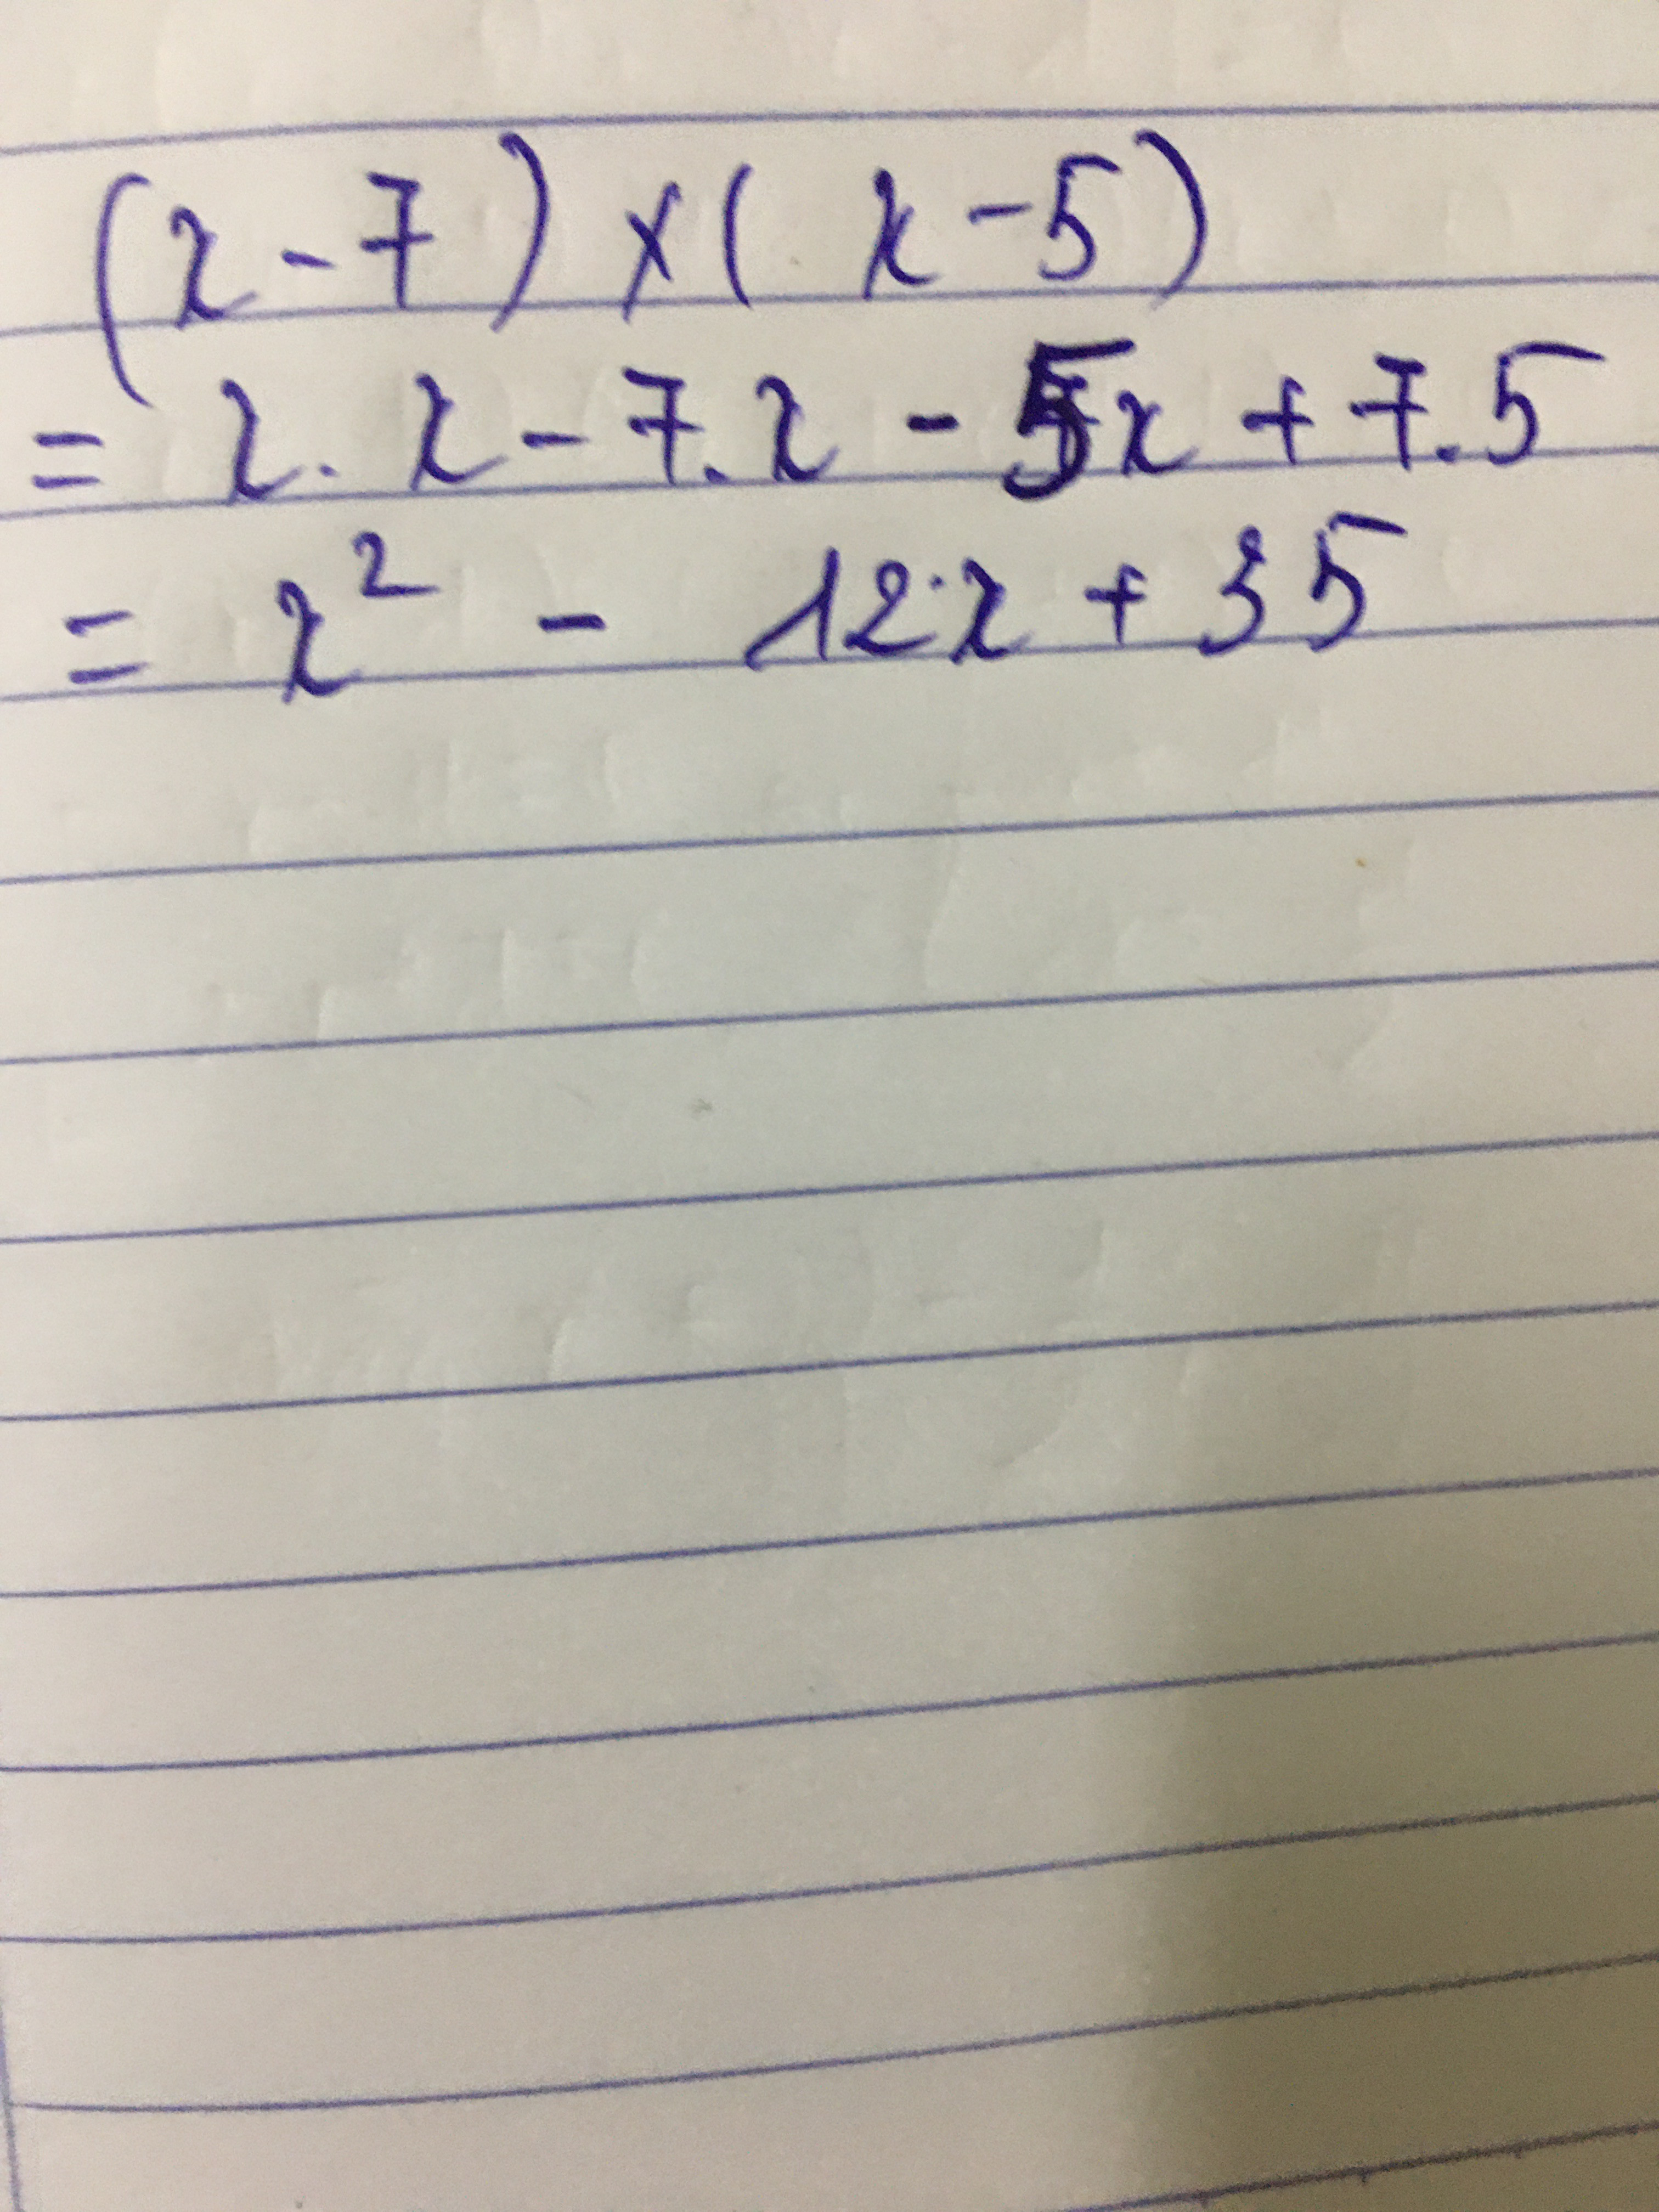 (x - 7) × (x - 5)
= x . x - 7 . x - 5x + 7 . 5
= x² - 12x + 35